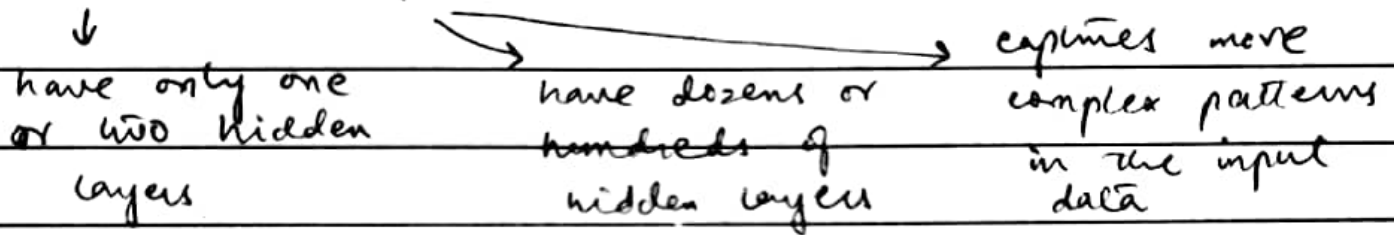 have only one
or two hidden
layers
have dozens or
hundreds of
hidden layers
captures more
complex patterns
in the input
data